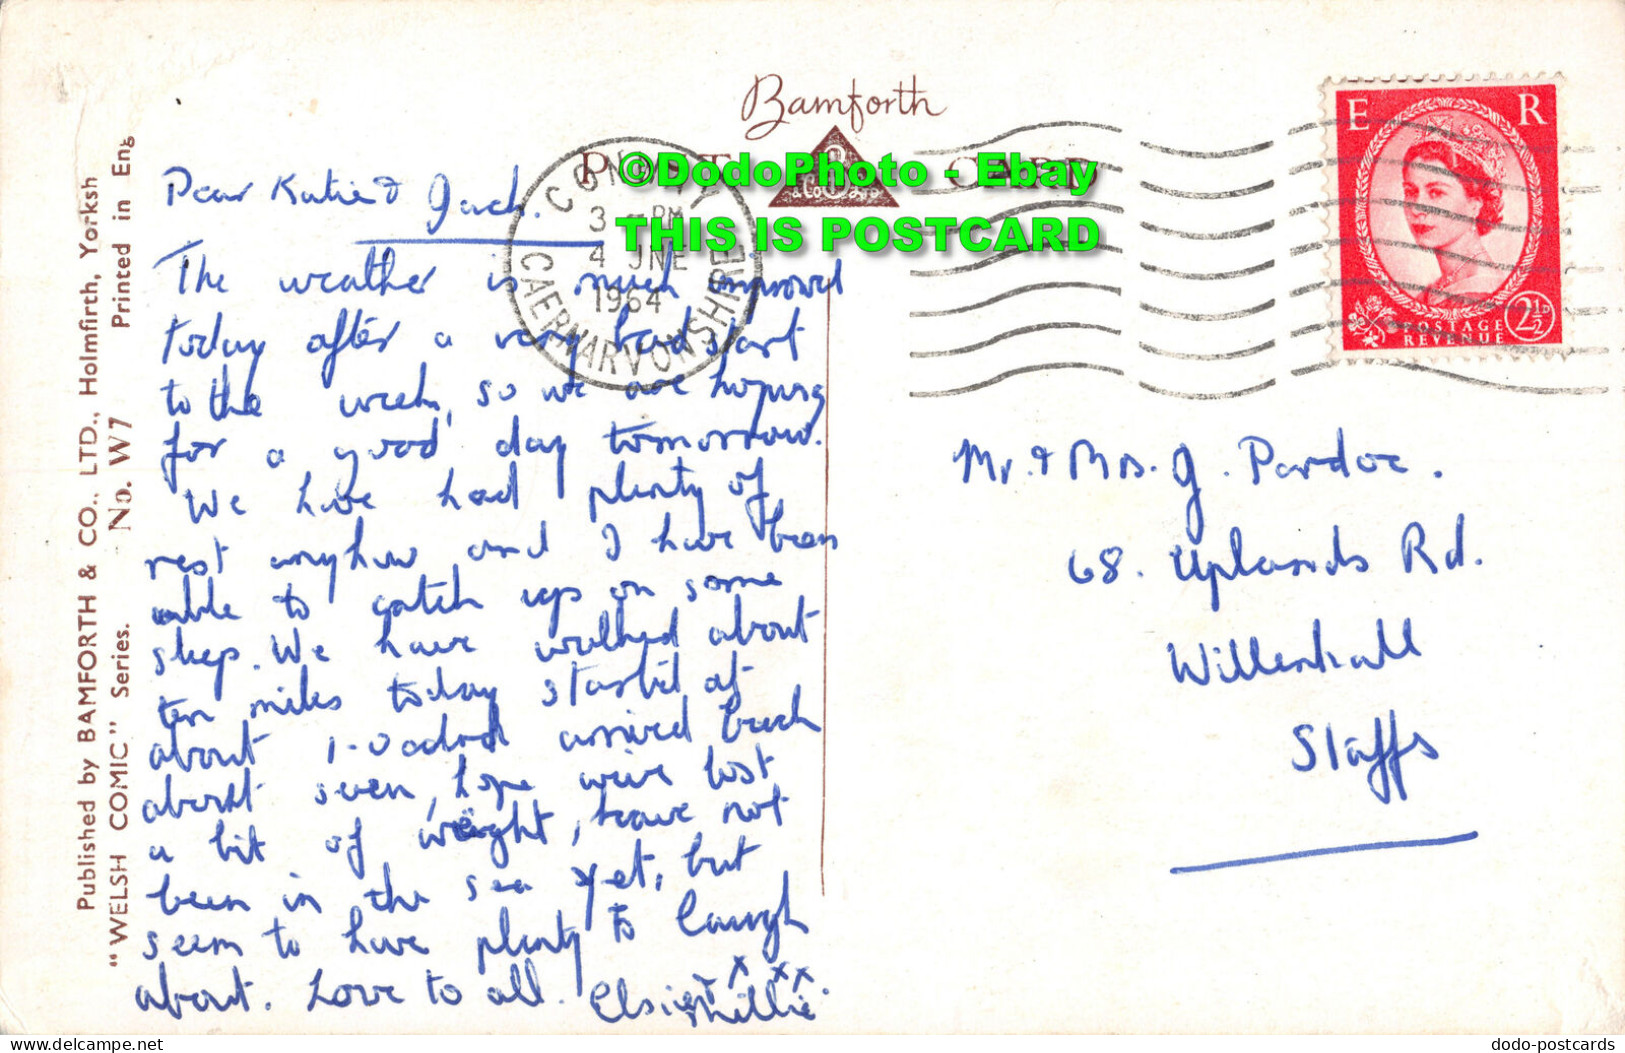 Bamforth
POST CARD
©DodoPhoto - Ebay
THIS IS POSTCARD
& Co Ltd
CONWAY
3 - PM
4 JNE
1964
CAERNARVONSHIRE
E R
POSTAGE
REVENUE
2½D
Published by BAMFORTH & CO., LTD., Holmfirth, Yorksh
Printed in Eng
"WELSH COMIC" Series. No. W7
Dear Katie & Jack.
The weather is much improved
today after a very bad start
to the week, so we are hoping
for a good day tomorrow.
We have had plenty of
rest anyhow and I have been
able to catch up on some
sleep. We have walked about
ten miles today started at
about 1-0 oclock arrived back
about seven, hope weve lost
a bit of weight, have not
been in the sea yet, but
seem to have plenty to laugh
about. Love to all.
Elsie & Millie.
x x x
Mr. & Mrs. J. Pardoe.
68. Uplands Rd.
Willenhall
Staffs
dodo-postcards